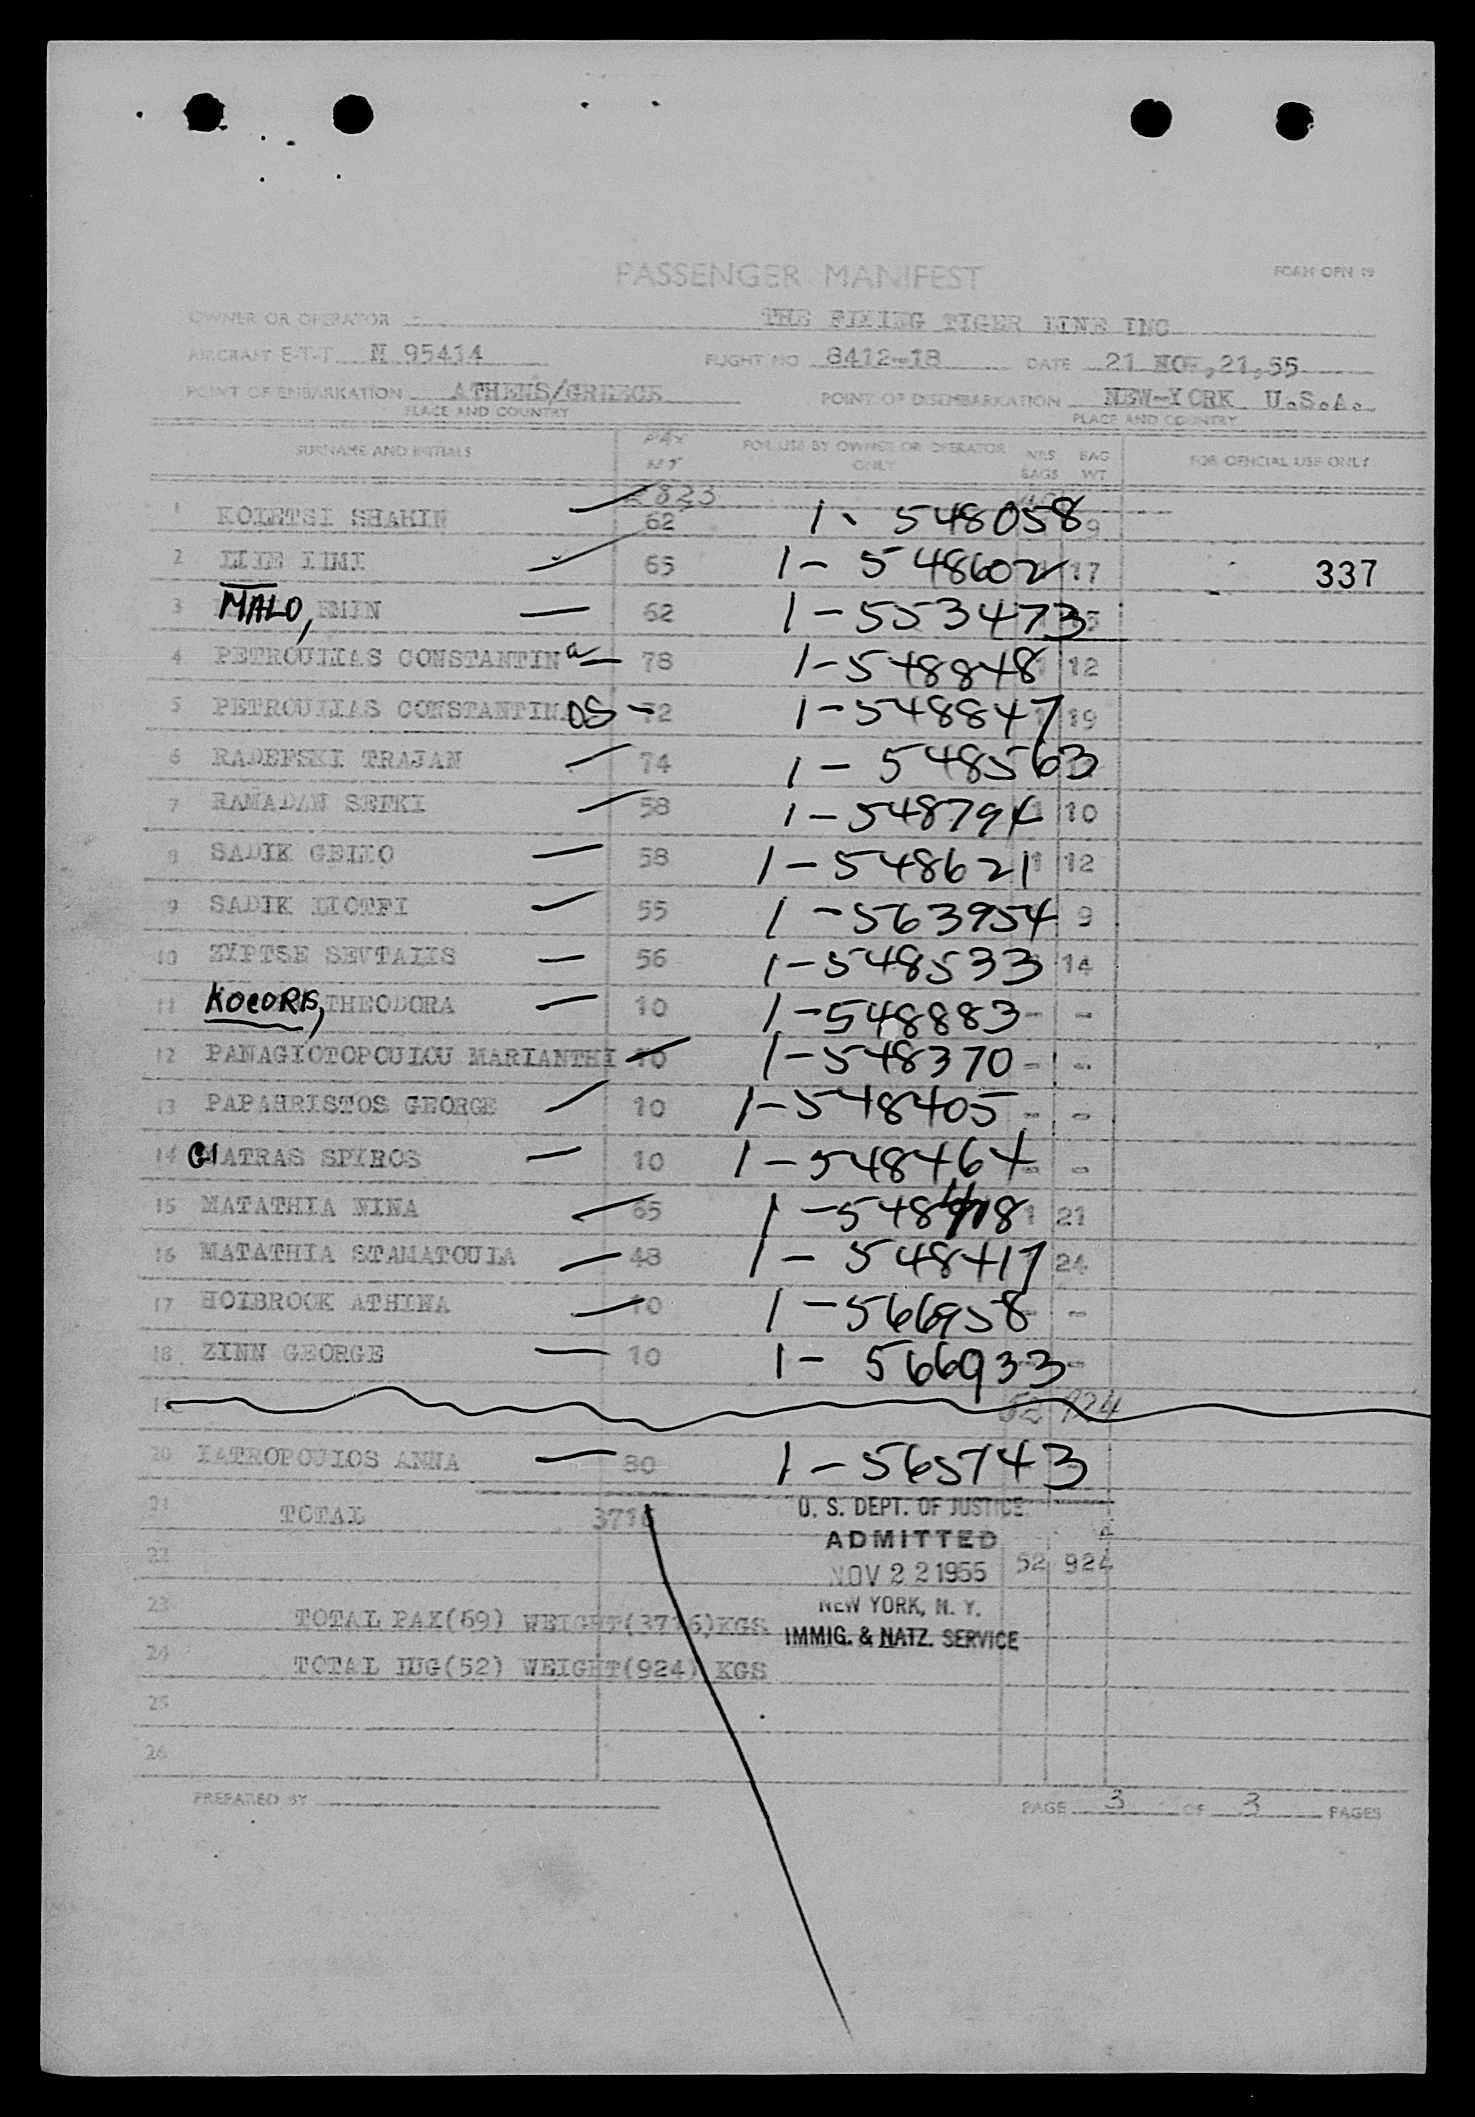 PASSENGER MANIFEST FORM OPN 19
OWNER OR OPERATOR THE FLYING TIGER LINE INC
AIRCRAFT E-T-T N 95414 FLIGHT NO 8412-18 DATE 21 NOV, 21, 55
POINT OF EMBARKATION ATHENS/GREECE POINT OF DISEMBARKATION NEW-YORK U.S.A.
PLACE AND COUNTRY PLACE AND COUNTRY
SURNAME AND INITIALS PAX WT FOR USE BY OWNER OR OPERATOR ONLY NRS BAGS BAG WT FOR OFFICIAL USE ONLY
2823
1 KOLETSI SHAHIN 62 1-548058 9
2 LIMI 65 1-548602 17 337
3 MALO, EMIN 62 1-553473
4 PETROULIAS CONSTANTINa 78 1-548848 1 12
5 PETROULIAS CONSTANTINOS 72 1-548847 1 19
6 RADEFSKI TRAJAN 74 1-548563
7 RAMADAN SEFKI 58 1-548794 1 10
8 SADIK GELHO 58 1-548621 1 12
9 SADIK LIOTFI 55 1-563954 9
10 ZYPTSE SEVTALIS 56 1-548533 14
11 KOCORIS, THEODORA 10 1-548883 - -
12 PANAGIOTOPOULOU MARIANTHI 10 1-548370 - -
13 PAPAHRISTOS GEORGE 10 1-548405 - -
14 GIATRAS SPIROS 10 1-548464 - -
15 MATATHIA NINA 65 1 21
16 MATATHIA STAMATOULA 48 1-548417 24
17 HOLBROOK ATHINA 10 1-566958 - -
18 ZINN GEORGE 10 1-566933 - -
19 52 924
20 IATROPOULOS ANNA 80 1-565743
21 TOTAL 3716 U. S. DEPT. OF JUSTICE
ADMITTED
22 NOV 22 1955 52 924
NEW YORK, N. Y.
23 TOTAL PAX(69) WEIGHT(3716)KGS IMMIG. & NATZ. SERVICE
24 TOTAL LUG(52) WEIGHT(924) KGS
25
26
PREPARED BY PAGE 3 OF 3 PAGES